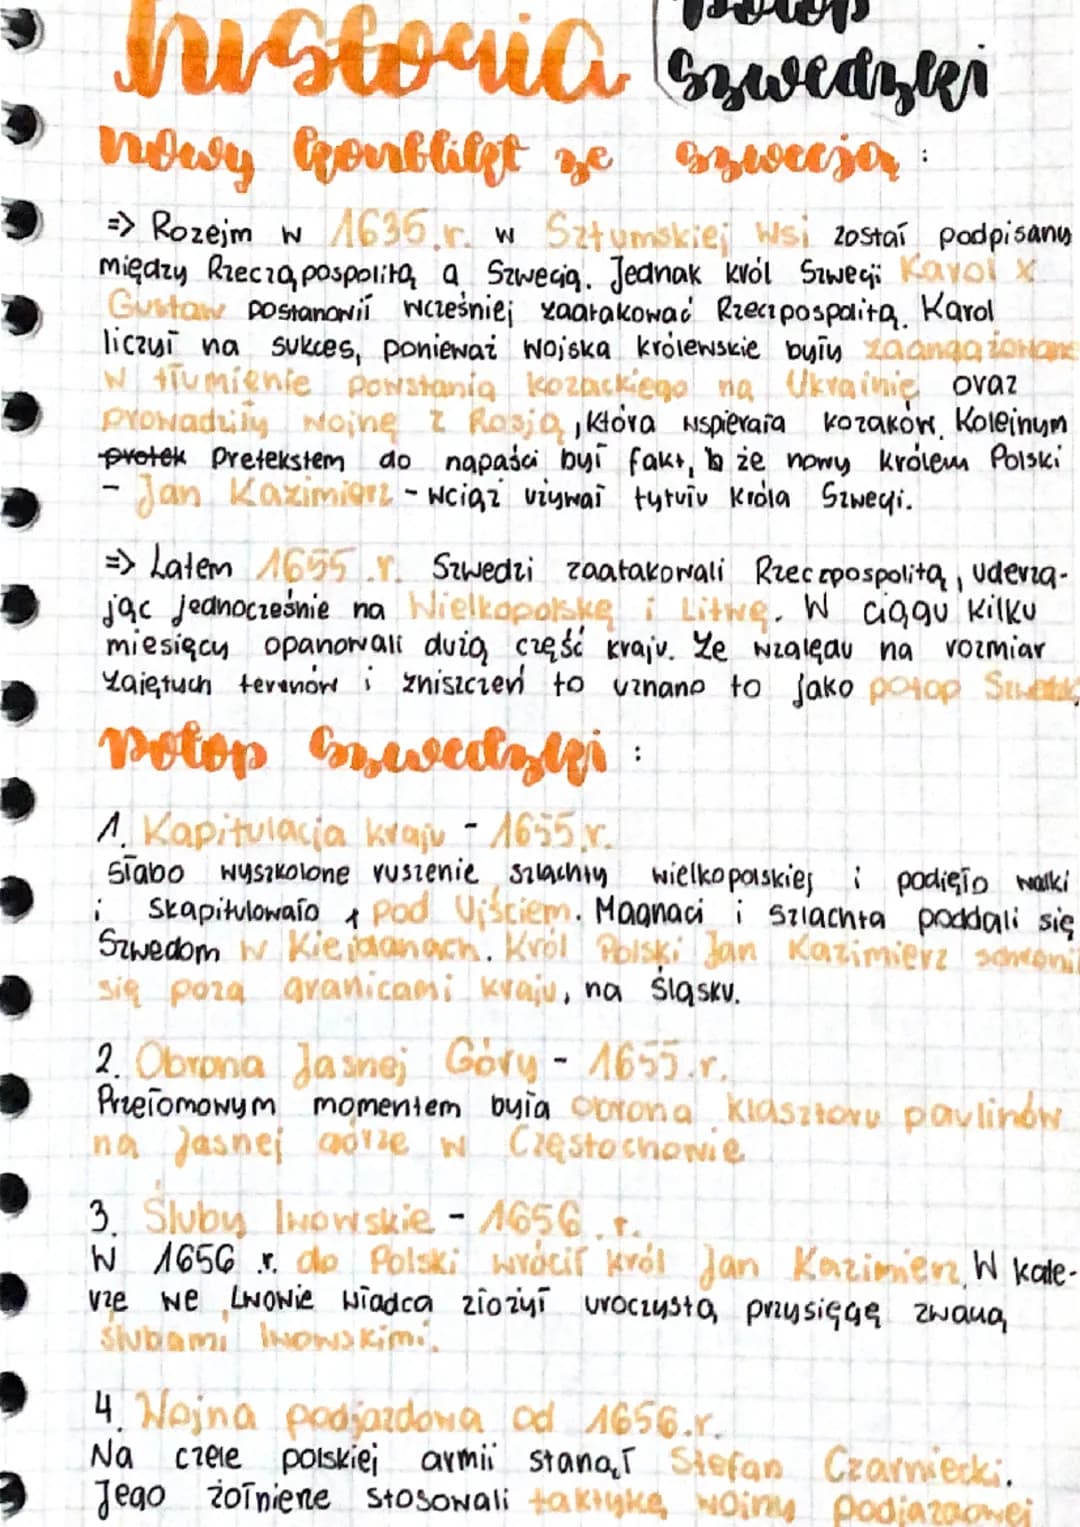 historia
potop
szwedzki
nowy konflikt ze szwecją :
=> Rozejm w 1635.r. w Sztumskiej Wsi został podpisany
między Rzeczą pospolitą a Szwecją. Jednak król Szwecji Karol X
Gustaw postanowił wcześniej zaatakować Rzeczpospolitą. Karol
liczył na sukces, ponieważ wojska królewskie były zaangażowane
w tłumienie powstania kozackiego na Ukrainie oraz
prowadziły wojnę z Rosją, która wspierała kozaków. Kolejnym
protek Pretekstem do napaści był fakt, że nowy królem Polski
- Jan Kazimierz - wciąż używał tytułu króla Szwecji.
=> Latem 1655.r. Szwedzi zaatakowali Rzeczpospolitą, uderza-
jąc jednocześnie na Wielkopolskę i Litwę. W ciągu kilku
miesięcy opanowali dużą część kraju. Ze względu na rozmiar
zajętych terenów i zniszczeń to uznano to jako potop
potop szwedzki :
1. Kapitulacja kraju - 1655.r.
Słabo wyszkolone ruszenie szlachty wielkopolskiej i podjęło walki
i skapitulowało pod Ujściem. Magnaci i szlachta poddali się
Szwedom w Kiejdanach. Król Polski Jan Kazimierz schronił
się poza granicami kraju, na Śląsku.
2. Obrona Jasnej Góry - 1655.r.
Przełomowym momentem była obrona klasztoru paulinów
na Jasnej górze w Częstochowie
3. Śluby lwowskie - 1656.r.
W 1656.r. do Polski wrócił król Jan Kazimierz. W kate-
rze we Lwowie władca złożył uroczystą przysięgę zwaną
ślubami lwowskimi.
4. Wojna podjazdowa od 1656.r.
Na czele polskiej armii stanął Stefan Czarniecki.
Jego żołnierze stosowali taktykę wojny podjazdowej